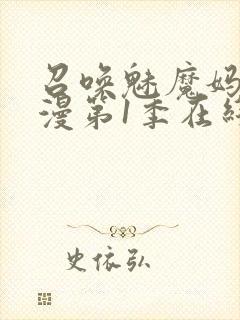 召唤魅魔妈
漫第1季在线
史依弘